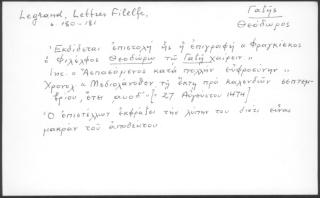 Legrand, Lettres Filelfe,
σ. 180-181
Γαζῆς
Θεόδωρος
Ἐκδίδεται ἐπιστολὴ ἧς ἡ ἐπιγραφὴ « Φραγκίσκος
ὁ Φιλέλφος Θεοδώρῳ τῷ Γαζῇ χαίρειν »
Inc. « Ἀσπασάμενος κατὰ πολλὴν εὐφροσύνην »
Χρονολ « Μεδιολάνοθεν τῇ ἕκτῃ πρὸ καλενδῶν σεπτεμ-
βρίου, ἔτει αυοδ´» [= 27 Αὐγούστου 1474]
Ὁ ἐπιστέλλων ἐκφράζει τὴν λύπην του διότι εἶναι
μακρὰν τοῦ ἀποδέκτου